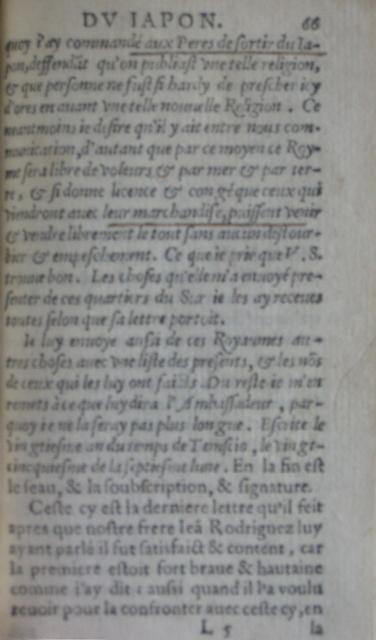 DV IAPON. 66
quoy i'ay commandé aux Peres de sortir du Ia-
pon, deffendāt qu'on publiast vne telle religion,
& que personne ne fust si hardy de prescher icy
d'ores en auant vne telle nouuelle Religion. Ce
neantmoins ie desire qu'il y ait entre nous com-
munication, d'autant que par ce moyen ce Roy-
me sera libre de voleurs & par mer & par ter-
re, & si donne licence & congé que ceux qui
viendront auec leur marchandise, puissent venir
& vendre librement le tout sans aucun destour-
bier & empeschement. Ce que ie prie que V. S.
trouue bon. Les choses qu'elle m'a enuoyé pre-
senter de ces quartiers du Sur ie les ay receues
toutes selon que sa lettre portoit.
Ie luy enuoye aussi de ces Royaumes au-
tres choses auec vne liste des presents, & les nōs
de ceux qui les luy ont faicts. Du reste ie m'en
remets à ce que luy dira l'Ambassadeur, par-
quoy ie ne la feray pas plus longue. Escrite le
vingtiesme an du temps de Tenscio, le vingt-
cinquiesme de la septiesme lune. En la fin est
le seau, & la soubscription, & signature.
Ceste cy est la derniere lettre qu'il feit
apres que nostre frere Ieā Rodriguez luy
ayant parlé il fut satisfaict & content, car
la premiere estoit fort braue & hautaine
comme i'ay dit: aussi quand il l'a voulu
reuoir pour la confronter auec ceste cy, en
L 5 la